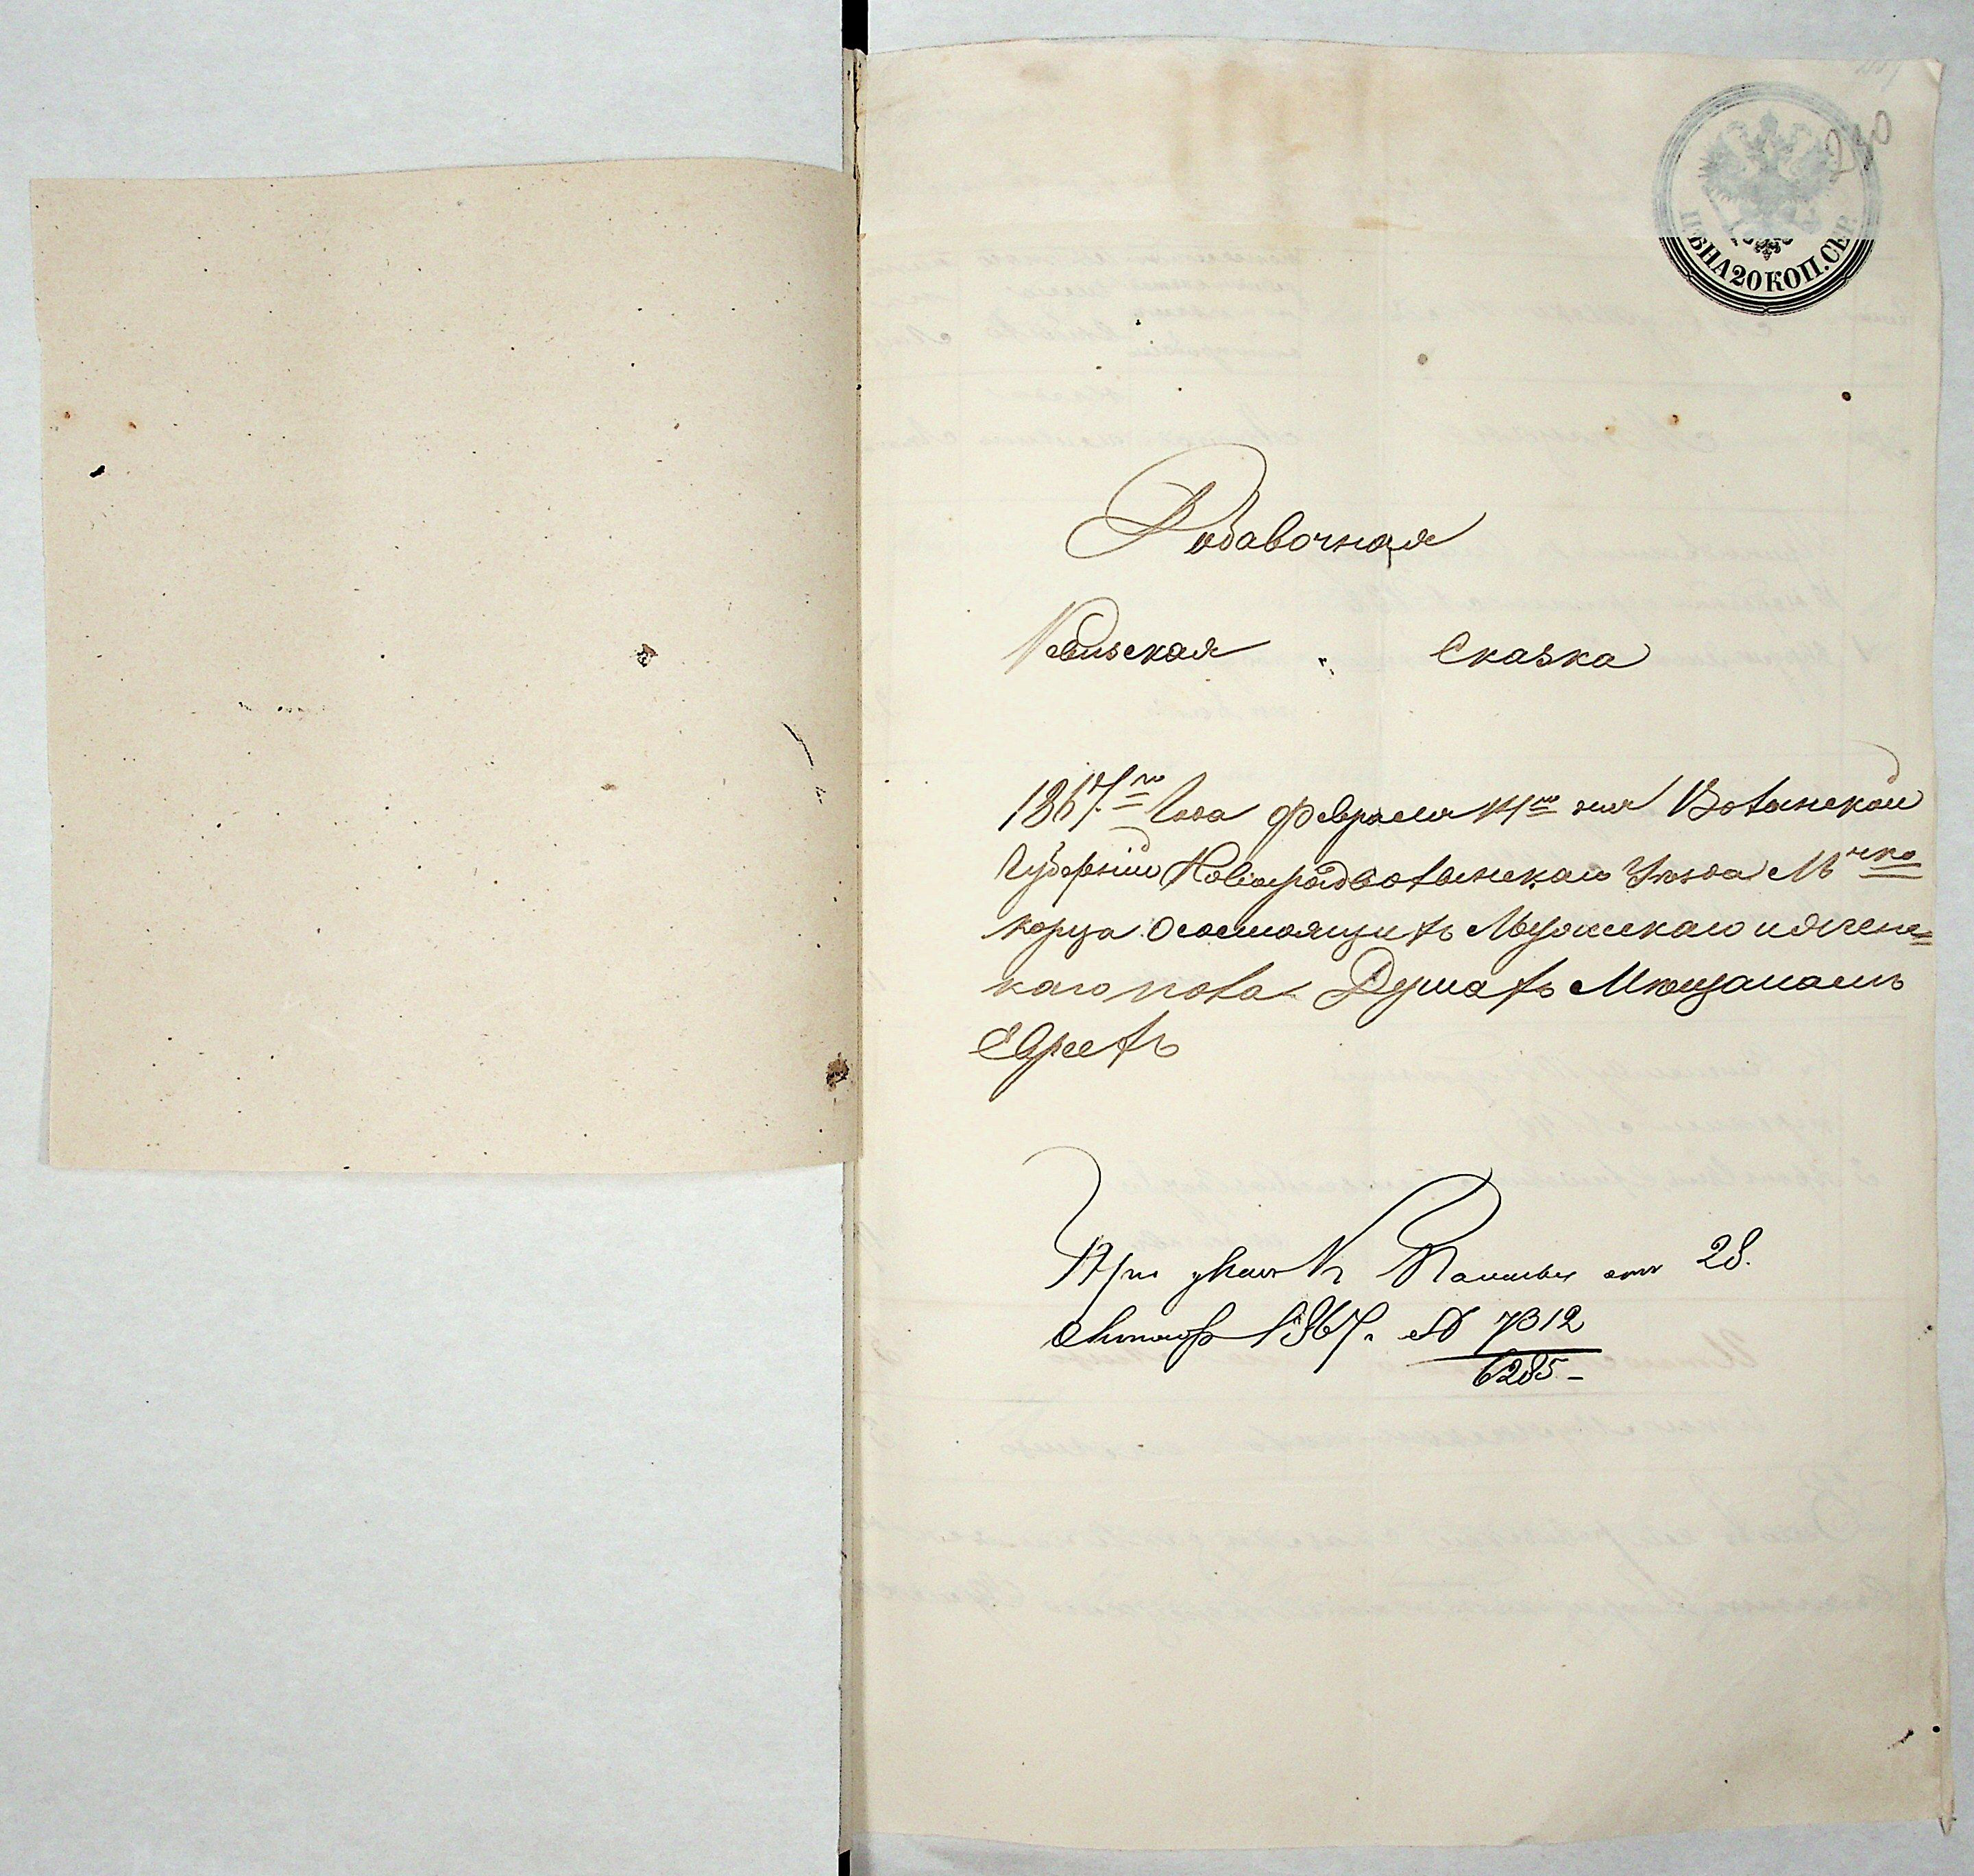 230
ЦѢНА 20 КОП. СЕР.
Добавочная
Ревизская Сказка
1867.го Года февраля 14го дня Волынской
Губерніи Новоградволынскаго Уѣзда Мѣчко
Корца О состоящихъ Мужескаго и женс=
каго пола Душахъ Мѣщанамъ
Евреехъ
При указѣ К. Палаты отъ 28.
Октября 1867. № 7312
6285 -